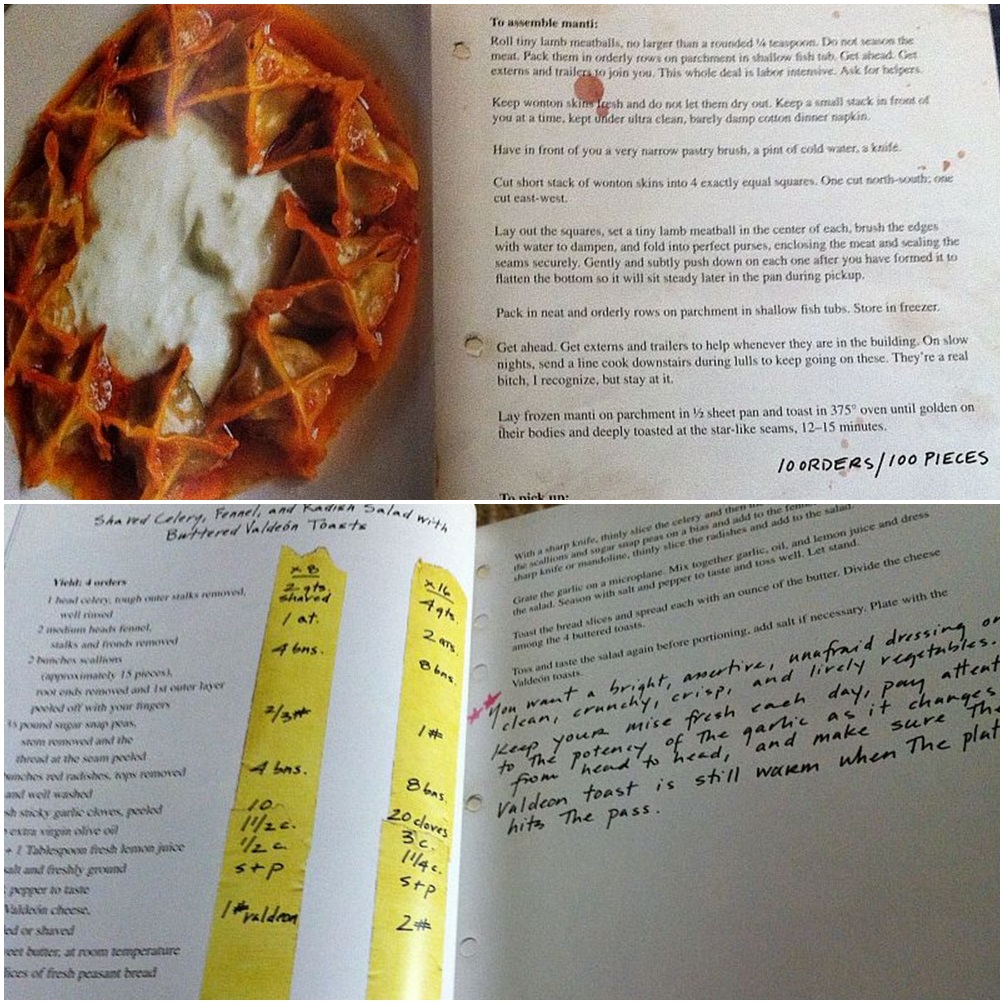 To assemble manti:
Roll tiny lamb meatballs, no larger than a rounded ¼ teaspoon. Do not season the
meat. Pack them in orderly rows on parchment in shallow fish tub. Get ahead. Get
externs and trailers to join you. This whole deal is labor intensive. Ask for helpers.
Keep wonton skins fresh and do not let them dry out. Keep a small stack in front of
you at a time, kept under ultra clean, barely damp cotton dinner napkin.
Have in front of you a very narrow pastry brush, a pint of cold water, a knife.
Cut short stack of wonton skins into 4 exactly equal squares. One cut north-south; one
cut east-west.
Lay out the squares, set a tiny lamb meatball in the center of each, brush the edges
with water to dampen, and fold into perfect purses, enclosing the meat and sealing the
seams securely. Gently and subtly push down on each one after you have formed it to
flatten the bottom so it will sit steady later in the pan during pickup.
Pack in neat and orderly rows on parchment in shallow fish tubs. Store in freezer.
Get ahead. Get externs and trailers to help whenever they are in the building. On slow
nights, send a line cook downstairs during lulls to keep going on these. They're a real
bitch, I recognize, but stay at it.
Lay frozen manti on parchment in ½ sheet pan and toast in 375° oven until golden on
their bodies and deeply toasted at the star-like seams, 12–15 minutes.
10 ORDERS/100 PIECES
To pick up:
Shaved Celery, Fennel, and Radish Salad with
Buttered Valdeón Toasts
Yield: 4 orders
1 head celery, tough outer stalks removed,
well rinsed
2 medium heads fennel,
stalks and fronds removed
2 bunches scallions
(approximately 15 pieces),
root ends removed and 1st outer layer
peeled off with your fingers
pound sugar snap peas,
stem removed and the
thread at the seam peeled
bunches red radishes, tops removed
and well washed
sticky garlic cloves, peeled
extra virgin olive oil
+ 1 Tablespoon fresh lemon juice
salt and freshly ground
pepper to taste
Valdeón cheese,
or shaved
butter, at room temperature
slices of fresh peasant bread
x 8
2 qts.
shaved
1 qt.
4 bns.
2/3#
4 bns.
10
1 1/2 c.
1/2 c.
s+p
1# valdeon
x 16
4 qts.
2 qts.
8 bns.
1#
8 bns.
20 cloves
3 c.
1 1/4 c.
s+p
2#
With a sharp knife, thinly slice the celery and then
the scallions and sugar snap peas on a bias and add to the
sharp knife or mandoline, thinly slice the radishes and add to the salad.
Grate the garlic on a microplane. Mix together garlic, oil, and lemon juice and dress
the salad. Season with salt and pepper to taste and toss well. Let stand.
Toast the bread slices and spread each with an ounce of the butter. Divide the cheese
among the 4 buttered toasts.
Toss and taste the salad again before portioning, add salt if necessary. Plate with the
Valdeón toasts.
You want a bright, assertive, unafraid dressing on
clean, crunchy, crisp, and lively vegetables.
Keep your mise fresh each day, pay attent
to the potency of the garlic as it changes
from head to head, and make sure The
Valdeon toast is still warm when The plat
hits The pass.